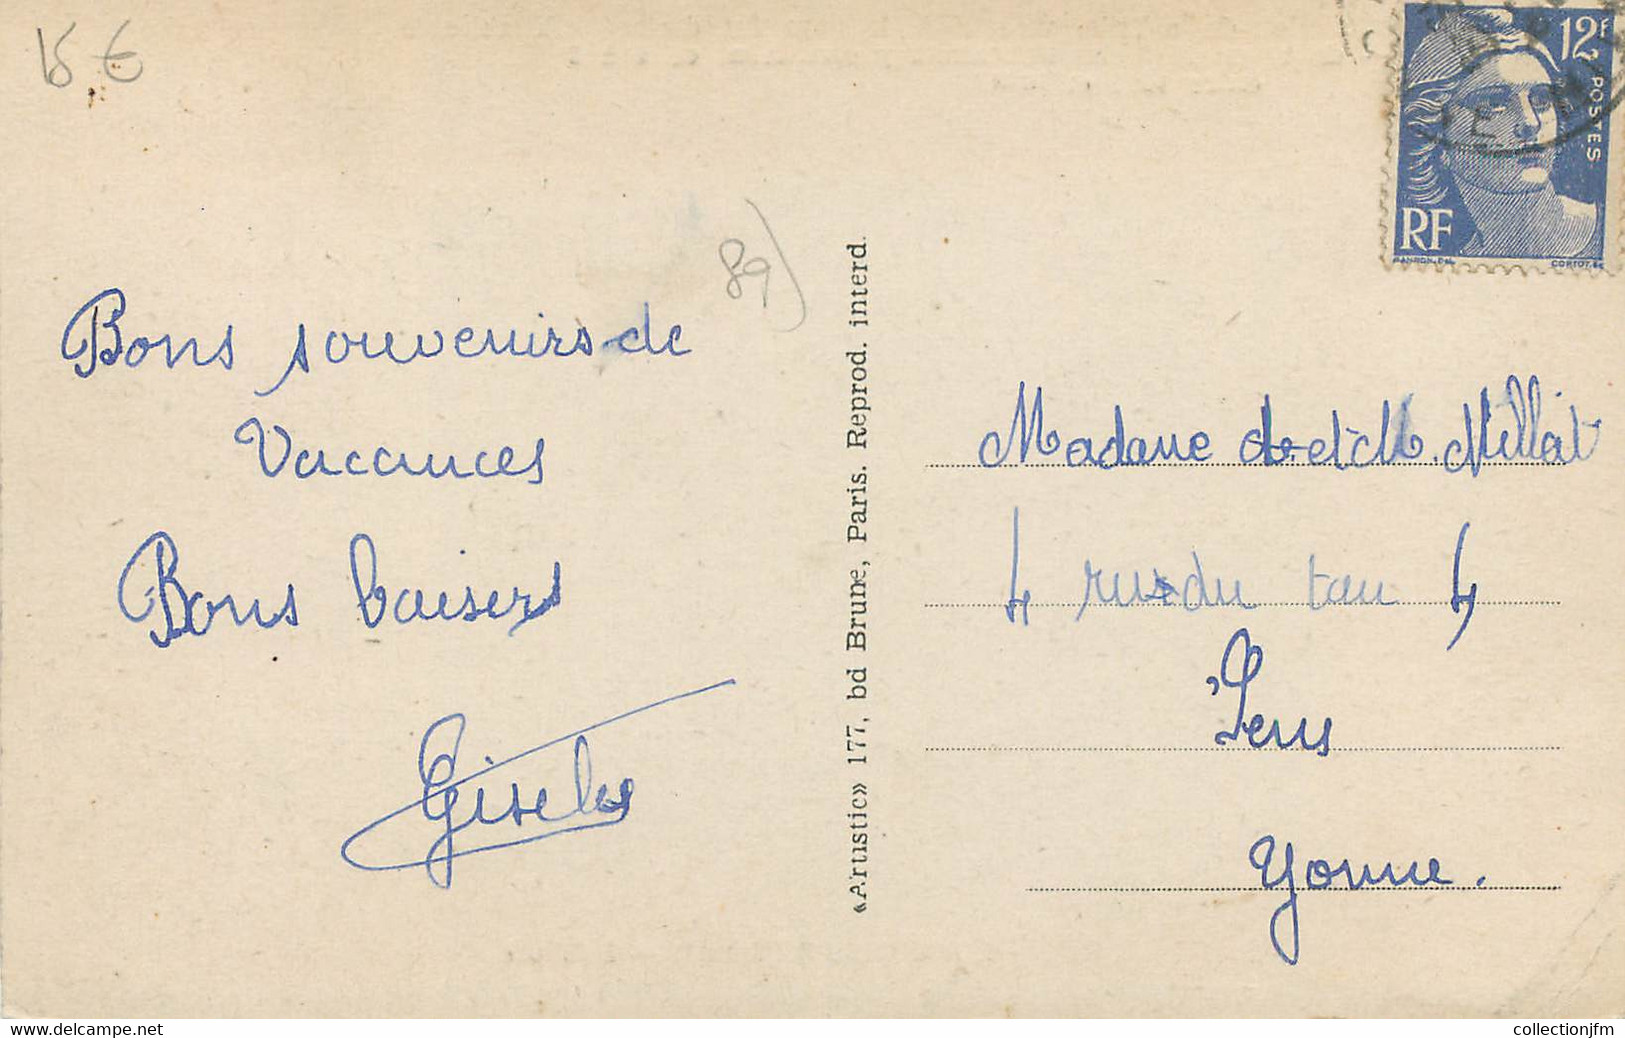 15 €
89)
Bons souvenirs de
Vacances
Bons baisers
Gisèle
«Artistic» 177, bd Brune, Paris. Reprod. interd.
12F
POSTES
RF
GANDON.DEL
CORTOT.SC
Madame et M. Millat
4 rue du tau 4
Sens
Yonne.
www.delcampe.net
collectionjfm